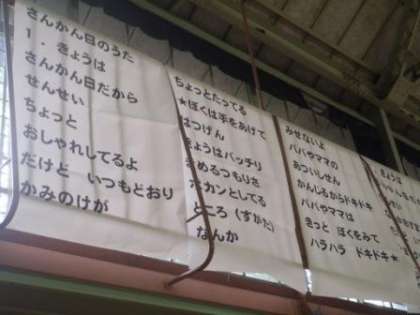 さんかん日のうた
1．きょうは
さんかん日だから
せんせい
ちょっと
おしゃれしてるよ
だけど いつもどおり
かみのけが
ちょっとたってる
★ぼくは手をあげて
はつげん
きょうはバッチリ
きめるつもりさ
ポカンとしてる
ところ（すがた）
なんか
みせないよ
パパやママの
あついしせん
かんじるからドキドキ
パパやママは
きっと ぼくをみて
ハラハラ ドキドキ★
きょうは